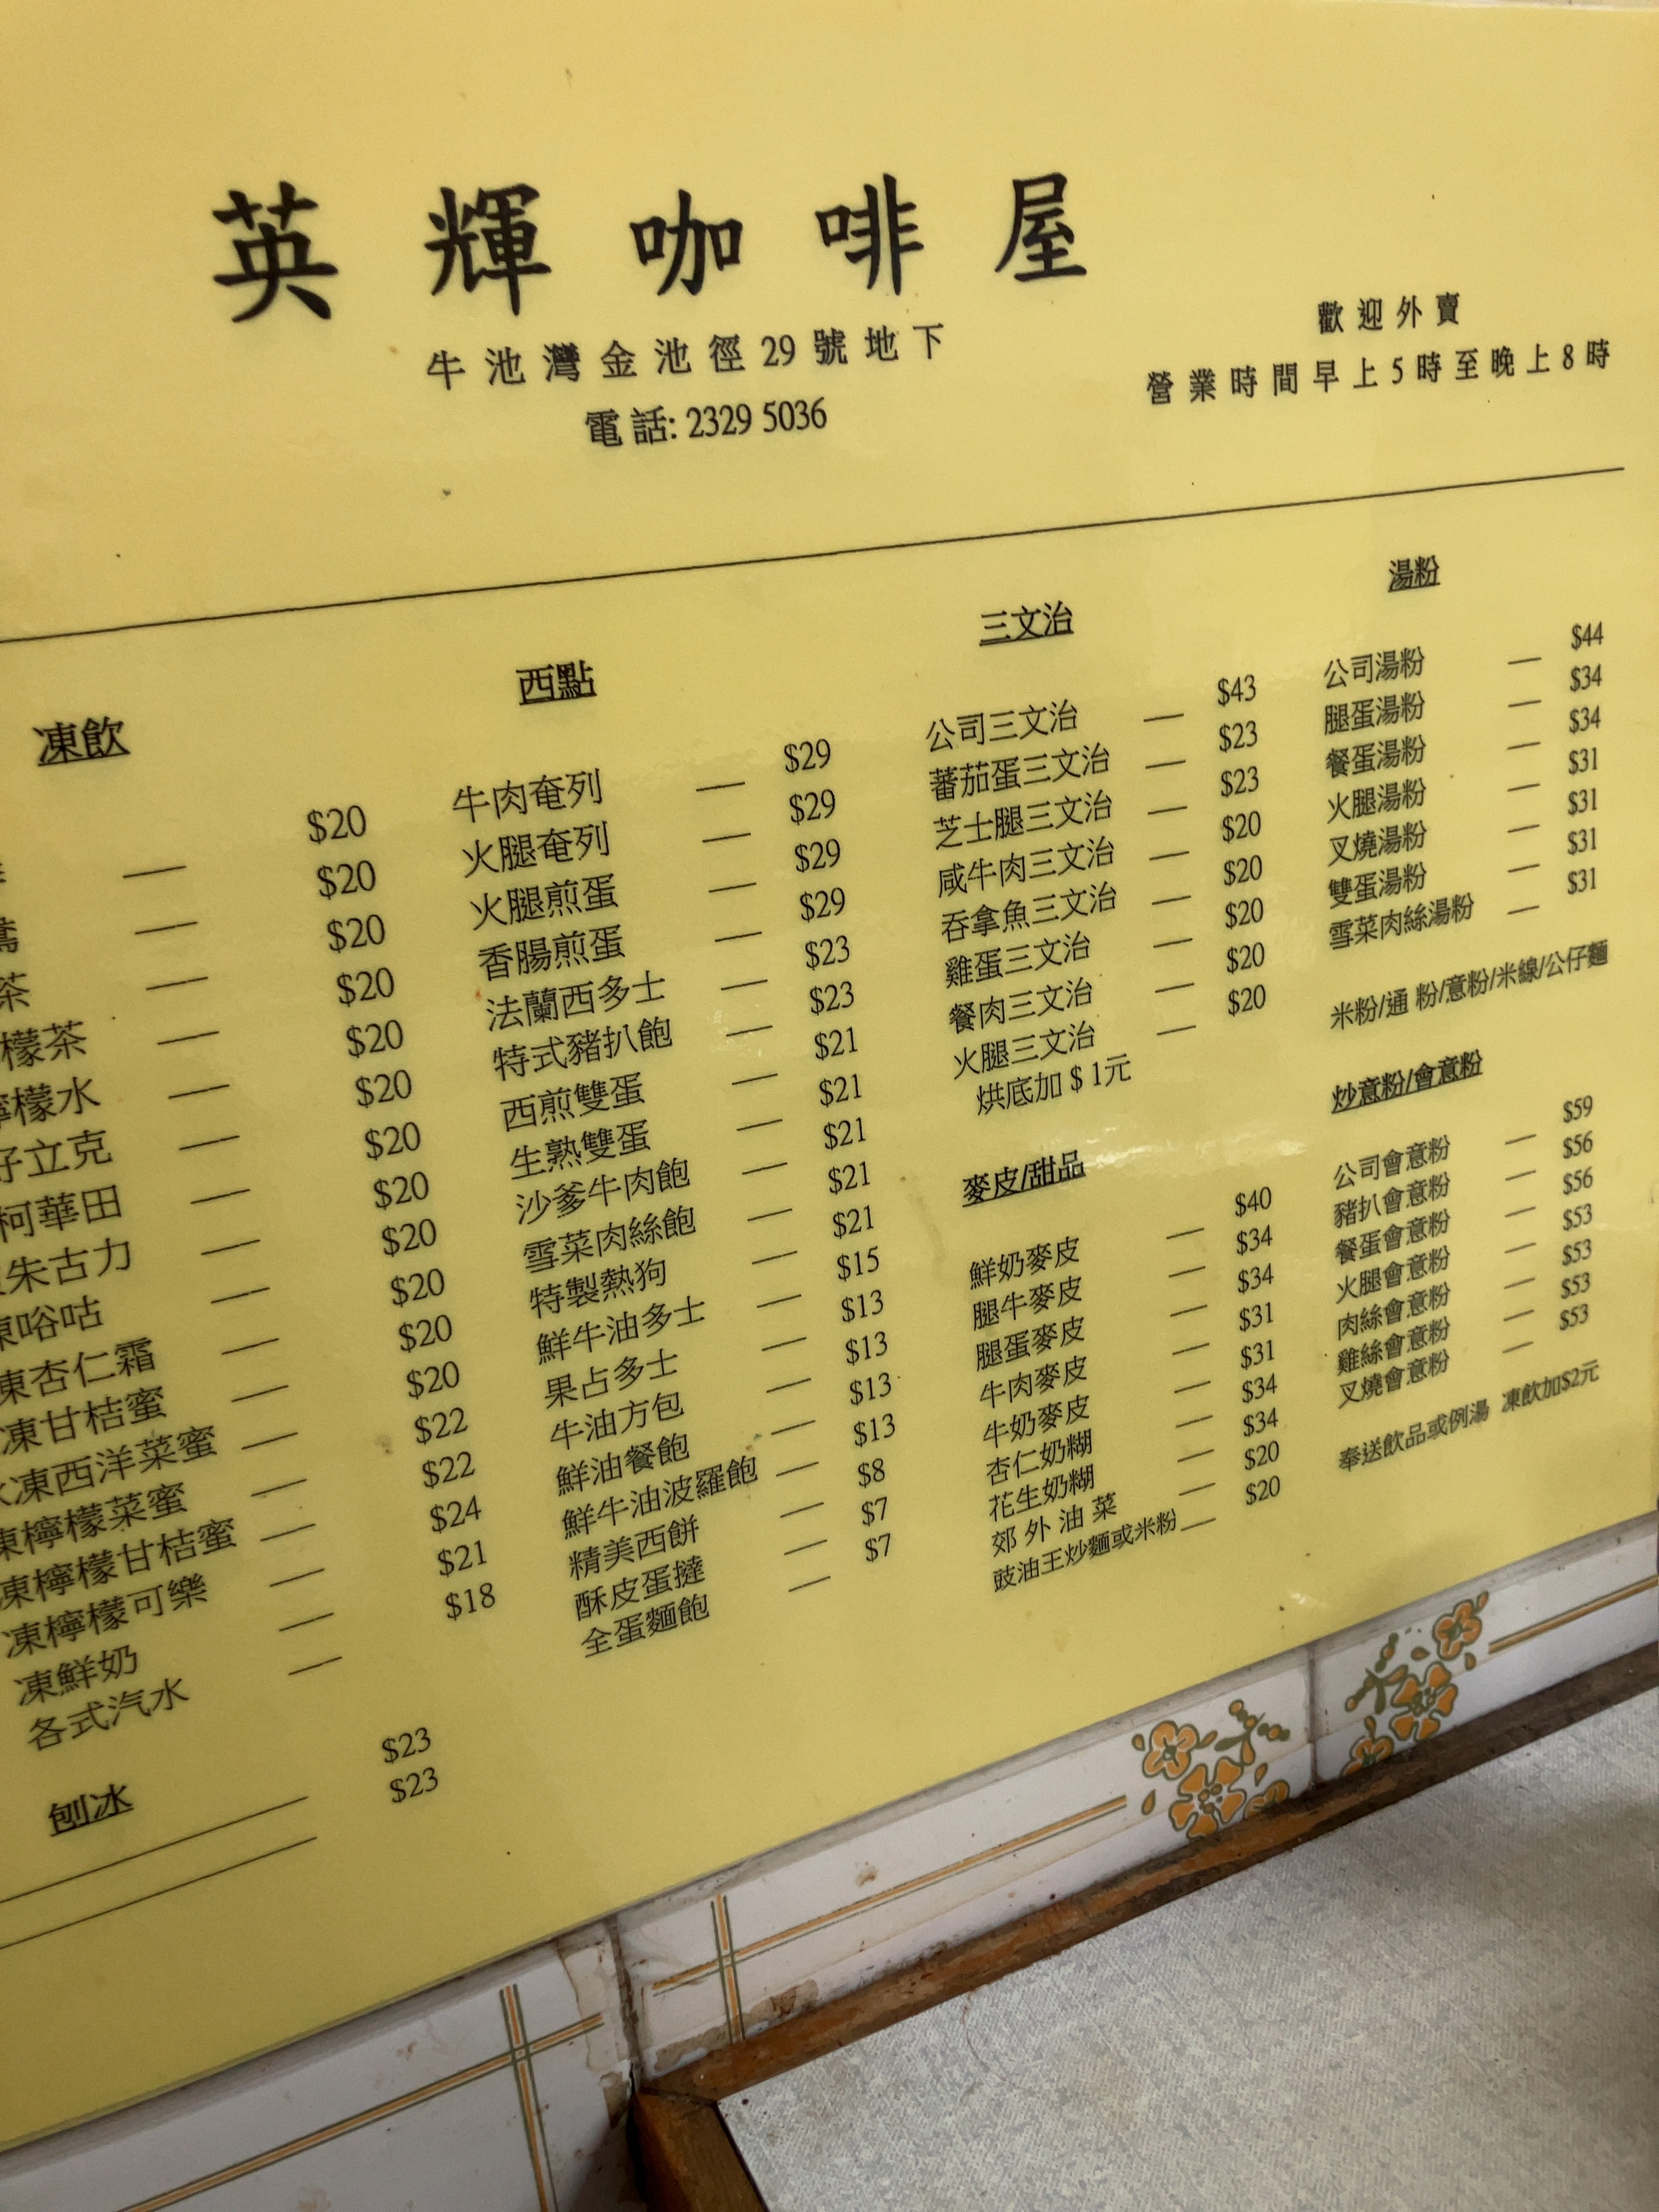 英輝咖啡屋
牛池灣金池徑29號地下
電話: 2329 5036
歡迎外賣
營業時間早上5時至晚上8時
凍飲
— $20
— $20
茶 — $20
檬茶 — $20
檸檬水 — $20
好立克 — $20
柯華田 — $20
朱古力 — $20
凍唂咕 — $20
凍杏仁霜 — $20
凍甘桔蜜 — $20
凍西洋菜蜜 — $20
凍檸檬菜蜜 — $22
凍檸檬甘桔蜜 — $22
凍檸檬可樂 — $24
凍鮮奶 — $21
各式汽水 — $18
刨冰
$23
$23
西點
牛肉奄列 — $29
火腿奄列 — $29
火腿煎蛋 — $29
香腸煎蛋 — $29
法蘭西多士 — $23
特式豬扒飽 — $23
西煎雙蛋 — $21
生熟雙蛋 — $21
沙爹牛肉飽 — $21
雪菜肉絲飽 — $21
特製熱狗 — $21
鮮牛油多士 — $15
果占多士 — $13
牛油方包 — $13
鮮油餐飽 — $13
鮮牛油波羅飽 — $13
精美西餅 — $8
酥皮蛋撻 — $7
全蛋麵飽 — $7
三文治
公司三文治 — $43
蕃茄蛋三文治 — $23
芝士腿三文治 — $23
咸牛肉三文治 — $20
吞拿魚三文治 — $20
雞蛋三文治 — $20
餐肉三文治 — $20
火腿三文治 — $20
烘底加 $ 1元
麥皮/甜品
鮮奶麥皮 — $40
腿牛麥皮 — $34
腿蛋麥皮 — $34
牛肉麥皮 — $31
牛奶麥皮 — $31
杏仁奶糊 — $34
花生奶糊 — $34
郊外油菜 — $20
豉油王炒麵或米粉 — $20
湯粉
公司湯粉 — $44
腿蛋湯粉 — $34
餐蛋湯粉 — $34
火腿湯粉 — $31
叉燒湯粉 — $31
雙蛋湯粉 — $31
雪菜肉絲湯粉 — $31
米粉/通 粉/意粉/米線/公仔麵
炒意粉/會意粉
公司會意粉 — $59
豬扒會意粉 — $56
餐蛋會意粉 — $56
火腿會意粉 — $53
肉絲會意粉 — $53
雞絲會意粉 — $53
叉燒會意粉 — $53
奉送飲品或例湯 凍飲加$2元